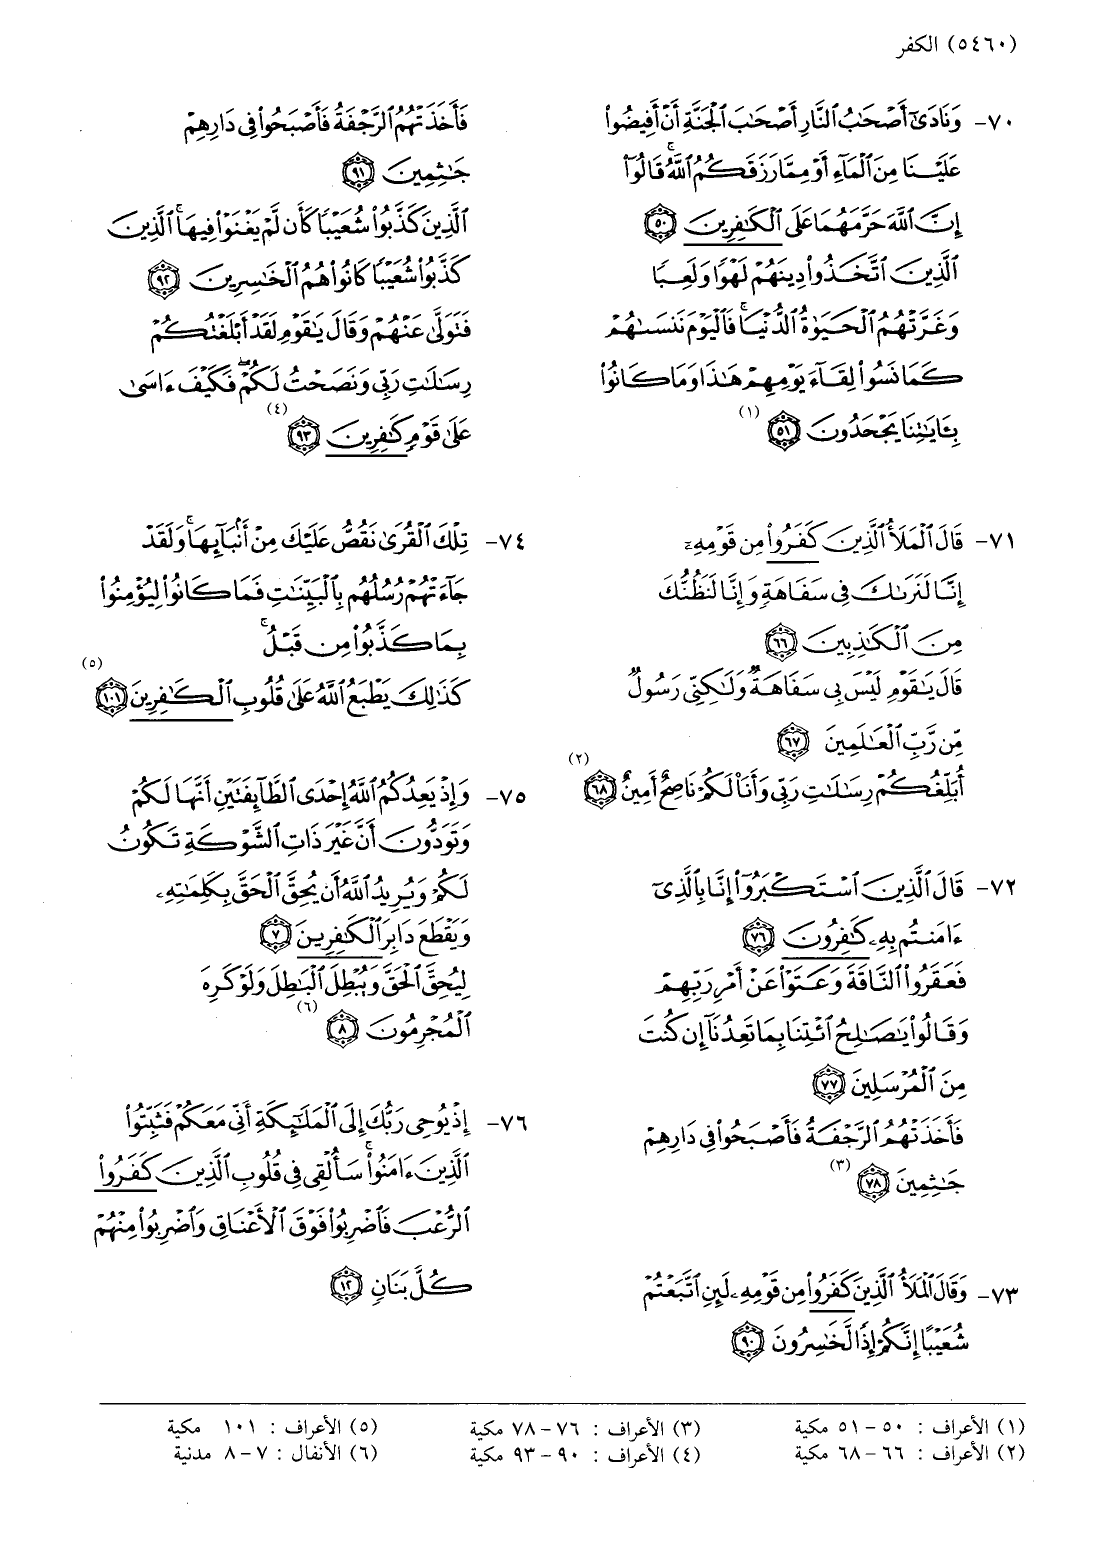 (٥٤٦٠) الكفر
٧٠- وَنَادَىٰٓ أَصْحَـٰبُ ٱلنَّارِ أَصْحَـٰبَ ٱلْجَنَّةِ أَنْ أَفِيضُوا۟
عَلَيْنَا مِنَ ٱلْمَآءِ أَوْ مِمَّا رَزَقَكُمُ ٱللَّهُ ۚ قَالُوٓا۟
إِنَّ ٱللَّهَ حَرَّمَهُمَا عَلَى ٱلْكَـٰفِرِينَ ﴿٥٠﴾
ٱلَّذِينَ ٱتَّخَذُوا۟ دِينَهُمْ لَهْوًا وَلَعِبًا
وَغَرَّتْهُمُ ٱلْحَيَوٰةُ ٱلدُّنْيَا ۚ فَٱلْيَوْمَ نَنسَىٰهُمْ
كَمَا نَسُوا۟ لِقَآءَ يَوْمِهِمْ هَـٰذَا وَمَا كَانُوا۟
بِـَٔايَـٰتِنَا يَجْحَدُونَ ﴿٥١﴾ (١)
٧١- قَالَ ٱلْمَلَأُ ٱلَّذِينَ كَفَرُوا۟ مِن قَوْمِهِۦٓ
إِنَّا لَنَرَىٰكَ فِى سَفَاهَةٍ وَإِنَّا لَنَظُنُّكَ
مِنَ ٱلْكَـٰذِبِينَ ﴿٦٦﴾
قَالَ يَـٰقَوْمِ لَيْسَ بِى سَفَاهَةٌ وَلَـٰكِنِّى رَسُولٌ
مِّن رَّبِّ ٱلْعَـٰلَمِينَ ﴿٦٧﴾
أُبَلِّغُكُمْ رِسَـٰلَـٰتِ رَبِّى وَأَنَا۠ لَكُمْ نَاصِحٌ أَمِينٌ ﴿٦٨﴾ (٢)
٧٢- قَالَ ٱلَّذِينَ ٱسْتَكْبَرُوٓا۟ إِنَّا بِٱلَّذِىٓ
ءَامَنتُم بِهِۦ كَـٰفِرُونَ ﴿٧٦﴾
فَعَقَرُوا۟ ٱلنَّاقَةَ وَعَتَوْا۟ عَنْ أَمْرِ رَبِّهِمْ
وَقَالُوا۟ يَـٰصَـٰلِحُ ٱئْتِنَا بِمَا تَعِدُنَآ إِن كُنتَ
مِنَ ٱلْمُرْسَلِينَ ﴿٧٧﴾
فَأَخَذَتْهُمُ ٱلرَّجْفَةُ فَأَصْبَحُوا۟ فِى دَارِهِمْ
جَـٰثِمِينَ ﴿٧٨﴾ (٣)
٧٣- وَقَالَ ٱلْمَلَأُ ٱلَّذِينَ كَفَرُوا۟ مِن قَوْمِهِۦ لَئِنِ ٱتَّبَعْتُمْ
شُعَيْبًا إِنَّكُمْ إِذًا لَّخَـٰسِرُونَ ﴿٩٠﴾
فَأَخَذَتْهُمُ ٱلرَّجْفَةُ فَأَصْبَحُوا۟ فِى دَارِهِمْ
جَـٰثِمِينَ ﴿٩١﴾
ٱلَّذِينَ كَذَّبُوا۟ شُعَيْبًا كَأَن لَّمْ يَغْنَوْا۟ فِيهَا ۚ ٱلَّذِينَ
كَذَّبُوا۟ شُعَيْبًا كَانُوا۟ هُمُ ٱلْخَـٰسِرِينَ ﴿٩٢﴾
فَتَوَلَّىٰ عَنْهُمْ وَقَالَ يَـٰقَوْمِ لَقَدْ أَبْلَغْتُكُمْ
رِسَـٰلَـٰتِ رَبِّى وَنَصَحْتُ لَكُمْ ۖ فَكَيْفَ ءَاسَىٰ
عَلَىٰ قَوْمٍ كَـٰفِرِينَ ﴿٩٣﴾ (٤)
٧٤- تِلْكَ ٱلْقُرَىٰ نَقُصُّ عَلَيْكَ مِنْ أَنۢبَآئِهَا ۚ وَلَقَدْ
جَآءَتْهُمْ رُسُلُهُم بِٱلْبَيِّنَـٰتِ فَمَا كَانُوا۟ لِيُؤْمِنُوا۟
بِمَا كَذَّبُوا۟ مِن قَبْلُ ۚ
كَذَٰلِكَ يَطْبَعُ ٱللَّهُ عَلَىٰ قُلُوبِ ٱلْكَـٰفِرِينَ ﴿١٠١﴾ (٥)
٧٥- وَإِذْ يَعِدُكُمُ ٱللَّهُ إِحْدَى ٱلطَّآئِفَتَيْنِ أَنَّهَا لَكُمْ
وَتَوَدُّونَ أَنَّ غَيْرَ ذَاتِ ٱلشَّوْكَةِ تَكُونُ
لَكُمْ وَيُرِيدُ ٱللَّهُ أَن يُحِقَّ ٱلْحَقَّ بِكَلِمَـٰتِهِۦ
وَيَقْطَعَ دَابِرَ ٱلْكَـٰفِرِينَ ﴿٧﴾
لِيُحِقَّ ٱلْحَقَّ وَيُبْطِلَ ٱلْبَـٰطِلَ وَلَوْ كَرِهَ
ٱلْمُجْرِمُونَ ﴿٨﴾ (٦)
٧٦- إِذْ يُوحِى رَبُّكَ إِلَى ٱلْمَلَـٰٓئِكَةِ أَنِّى مَعَكُمْ فَثَبِّتُوا۟
ٱلَّذِينَ ءَامَنُوا۟ ۚ سَأُلْقِى فِى قُلُوبِ ٱلَّذِينَ كَفَرُوا۟
ٱلرُّعْبَ فَٱضْرِبُوا۟ فَوْقَ ٱلْأَعْنَاقِ وَٱضْرِبُوا۟ مِنْهُمْ
كُلَّ بَنَانٍ ﴿١٢﴾
(١) الأعراف : ٥٠ - ٥١ مكية
(٢) الأعراف : ٦٦ - ٦٨ مكية
(٣) الأعراف : ٧٦ - ٧٨ مكية
(٤) الأعراف : ٩٠ - ٩٣ مكية
(٥) الأعراف : ١٠١ مكية
(٦) الأنفال : ٧ - ٨ مدنية